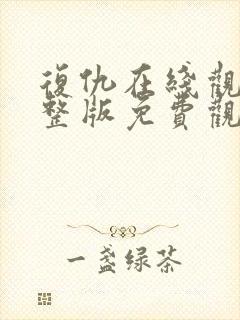 復仇在綫觀
整版免費觀
一盏绿茶